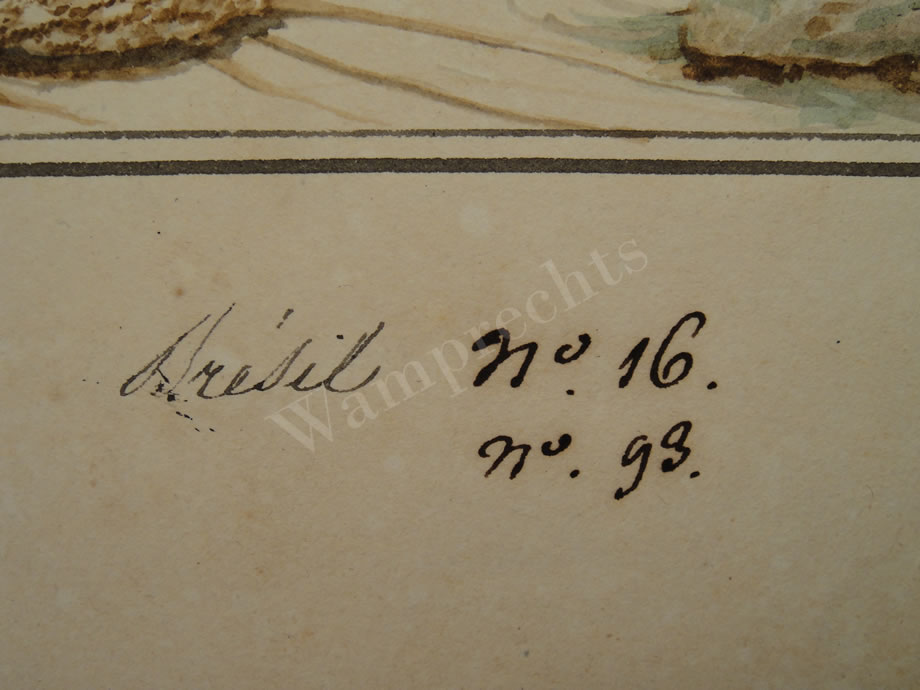 Brésil No. 16.
No. 93.
Wamprechts